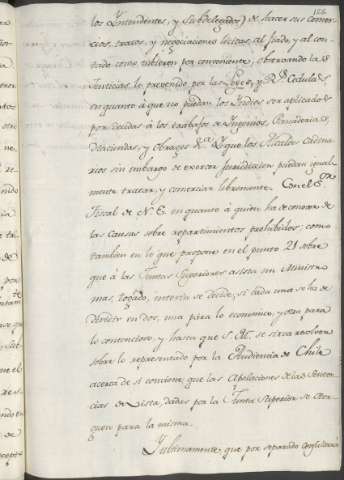 los Yntendentes, y Subdelegados) de hacer sus comer-
cios, tratos, y negociaciones licitas, al fiado, y al con-
tado como tubieren por conveniente; observando las
Justicias lo prevenido por las Leyes, y Rs. Cedulas
en quanto á que no puedan los Yndios ser aplicados
por deudas á los trabajos de Yngenios, Panaderias,
Haciendas, y obrages: Y que los Alcaldes Ordina-
rios sin embargo de exercer jurisdiccion puedan igual-
mente tratar, y comerciar libremente. Con el Sor.
Fiscal de N. E. en quanto á quien ha de conocer de
las causas sobre repartimientos prohibidos; como
tambien en lo que propone en el punto 21 sobre
que á las Juntas Superiores asista un Ministro
mas, togado, interin se decide, si cada una se ha de
dividir en dos, una para lo economico, y otra para
lo contencioso, y hasta que S. M. se sirva resolver
sobre lo representado por la Audiencia de Chile
acerca de si conviene, que las Apelaciones de las Senten-
cias de Vista, dadas por la Junta Superior se otor-
guen para la misma.
Y ultimamente, que por separado